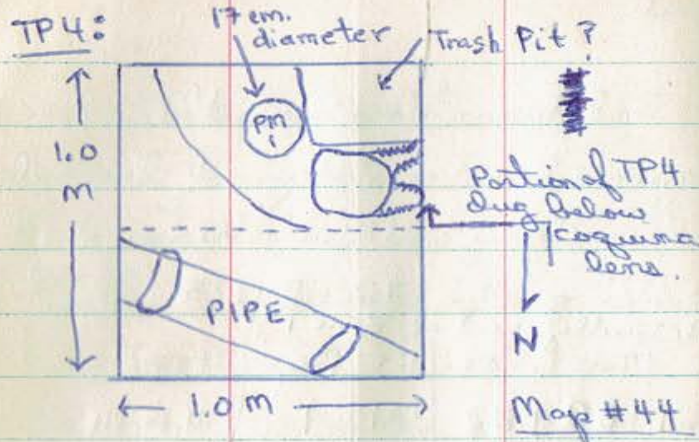 TP4:
17 cm.
diameter
Trash Pit?
PM
1
1.0
m
Portion of TP4
dug below
coquina
lens.
PIPE
N
1.0 m
Map #44